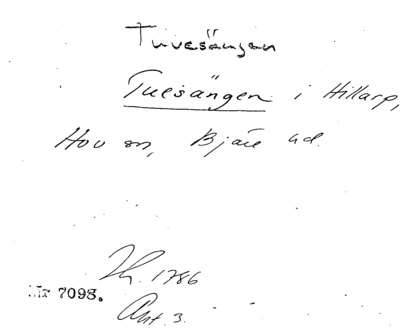 Tuvesängen
Tuesängen i Hillarp,
Hov sn, Bjäre hd.
1786
Nr 7098.
Akt. 3.